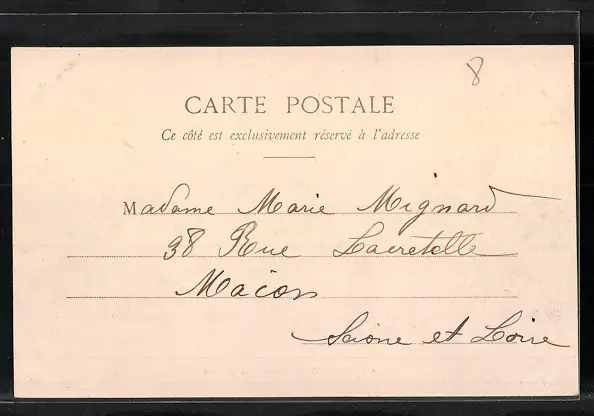 8
CARTE POSTALE
Ce côté est exclusivement réservé à l'adresse
Madame Marie Mignard
38 Rue Lacretelle
Macon
Saone et Loire